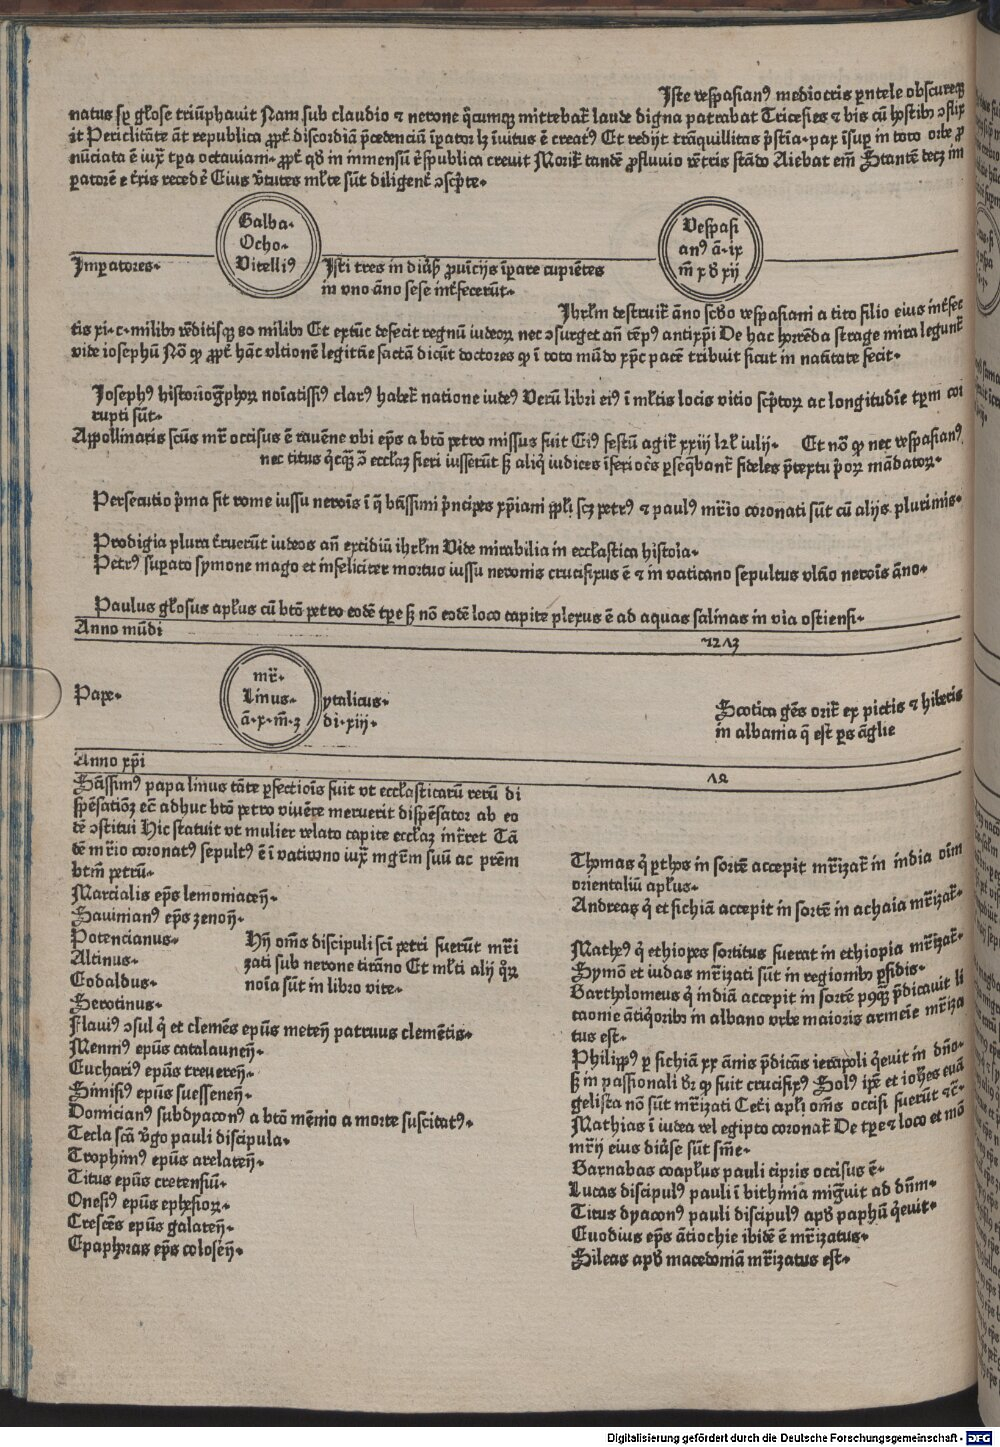 Iste vespasianꝰ mediocris pentele obscureqꝫ
natus sꝫ gl'ose triūphauit Nam sub claudio ⁊ nerone q̄cumqꝫ mittebat' laude digna patrabat Tricesies ⁊ bis cū hostibꝫ ↄflix
it Periclitāte āt republica ꝓpt' discordiā p̄cedenciū īpator lꝫ īuitus ē creatꝰ Et redijt trāquillitas p̄stīa. pax īsup in toto orbe ꝓ
nūciata ē iux̄ tꝑa octauiani. ꝓpt' qd' in immensū ēspublica creuit Morit' tandē ꝓfluuio vētris stādo Aiebat em̄ Stantē decꝫ im
ꝑatorē e t'ris recedē Eius v'tutes ml'te sūt diligent' ↄscp̄te.
Galba.
Ocho.
Vitelliꝰ
Vespasi
anꝰ ā. ix
m̄ x d' xij
Imꝑatores.
Isti tres in diūs' ꝓuīcijs īꝑare cupiētes
in vno āno sese int'fecerūt.
Ihrl'm destruit' āno scd'o vespasiani a tito filio eius int'fec
tis xi. c. milibꝫ vēditisqꝫ 80 milibꝫ Et extūc defecit regnū iudeoꝝ nec ↄsurget an̄ tēpꝰ antixp̄i De hac horrēda strage mira legunt'
vide iosephū Nō ꝙ ꝓpt' hāc vltionē legitīe factā dicūt doctores ꝙ ī toto mūdo xp̄c pacē tribuit sicut in natītate fecit.
Iosephꝰ historiogphoꝝ noīatissiꝰ clarꝰ habet' natione iudeꝰ Verū libri eiꝰ ī ml'tis locis vitio scp̄toꝝ ac longitudīe tꝑm cor
rupti sūt.
Appollinaris scūs mr̄ occisus ē rauēne vbi ep̄s a btō petro missus fuit Eiꝰ festū agit' xxiij kl' iulij. Et nō ꝙ nec vespasianꝰ
nec titus q̄cqꝫ ↄ̄ eccl'az fieri iusserūt sꝫ aliq̄ iudices īferiores ꝑseq̄bant' fideles p̄textu p̄oꝝ mādatoꝝ.
Persecutio p̄ma fit rome iussu neroīs ī q̄ btīssimi p̄ncipes xp̄iani ppl'i scꝫ petrꝰ ⁊ paulꝰ mr̄io coronati sūt cū alijs plurimis.
Prodigia plura t'ruerūt iudeos an̄ excidiū ihrl'm Vide mirabilia in eccl'astica histoīa.
Petrꝰ suꝑato symone mago et infeliciter mortuo iussu neronis crucifixus ē ⁊ in vaticano sepultus vltīo neroīs āno.
Paulus gl'osus apl'us cū btō petro eodē tꝑe sꝫ nō eodē loco capite plexus ē ad aquas saluias in via ostiensi.
Anno mūdi
mr̄.
Linus.
ā. x. m̄. 3
Pape.
ytalicus.
di. xiij.
Scotica gēs orit' ex pictis ⁊ hibernis
in albania q̄ est ꝑs āglie
Anno xp̄i
Sāssimꝰ papa linus tāte ꝑfectioīs fuit vt eccl'asticarū rerū di
spēsatiōꝫ ec̄ adhuc btō petro viuēte meruerit dispēsator ab eo
dē ↄstitui Hic statuit vt mulier velato capite eccl'az int'ret Tā
dē mr̄io coronatꝰ sepultꝰ ē ī vaticano iux̄ mgr̄m suū ac prēm
btm̄ petrū.
Marcialis ep̄s lemoniaceñ.
Sauinianꝰ ep̄s zenoñ.
Potencianus.
Altinus.
Eodaldus.
Serotinus.
Hij om̄s discipuli scī petri fuerūt mr̄i
zati sub nerone tirāno Et ml'ti alij q̄ꝝ
noīa sūt in libro vite.
Flauiꝰ ↄsul q̄ et clemēs ep̄us meteñ patruus clemētis.
Menniꝰ ep̄us catalauneñ.
Euchariꝰ ep̄us treuereñ.
Simisiꝰ ep̄us suesseneñ.
Domicianꝰ subdyaconꝰ a btō memīo a morte suscitatꝰ.
Tecla scā v'go pauli discipula.
Trophimꝰ ep̄us arelateñ.
Titus ep̄us cretensiū.
Onesiꝰ ep̄us ephesioꝝ.
Crescēs ep̄us galateñ.
Epaphras ep̄s coloseñ.
Thomas q̄ ꝑthos in sortē accepit mr̄izat' in india oīm
orientaliū apl'us.
Andreas q̄ et sichiā accepit in sortē in achaia mr̄izat'.
Mathꝰ q̄ ethiopes sortitus fuerat in ethiopia mr̄izat'.
Symō et iudas mr̄izati sūt in regionibꝫ ꝑsidis.
Bartholomeus q̄ indiā accepit in sortē p9qꝫ p̄dicauit li
caonie ātiq̄oribꝫ in albano vrbe maioris armeīe mr̄iza
tus est.
Philippꝰ ꝑ sichiā xx ānis p̄dicās ierapoli q̄euit in dn̄o.
sꝫ in passionali dr̄ ꝙ fuit crucifixꝰ Solꝰ ip̄e et ioh'es euā
gelista nō sūt mr̄izati Cet'i apl'i om̄s occisi fuerūt ⁊c̄.
Mathias ī iudea vel egipto coronat' De tꝑe ⁊ loco et mō
mr̄ij eius diūse sūt sn̄ie.
Barnabas coapl'us pauli cipris occisus ē.
Lucas discipulꝰ pauli ī bithinia migīuit ad dn̄m.
Titus dyaconꝰ pauli discipulꝰ apd' paphū q̄euit.
Euodius ep̄s ātiochie ibidē ē mr̄izatus.
Sileas apd' macedoniā mr̄izatus est.
Digitalisierung gefördert durch die Deutsche Forschungsgemeinschaft - DFG